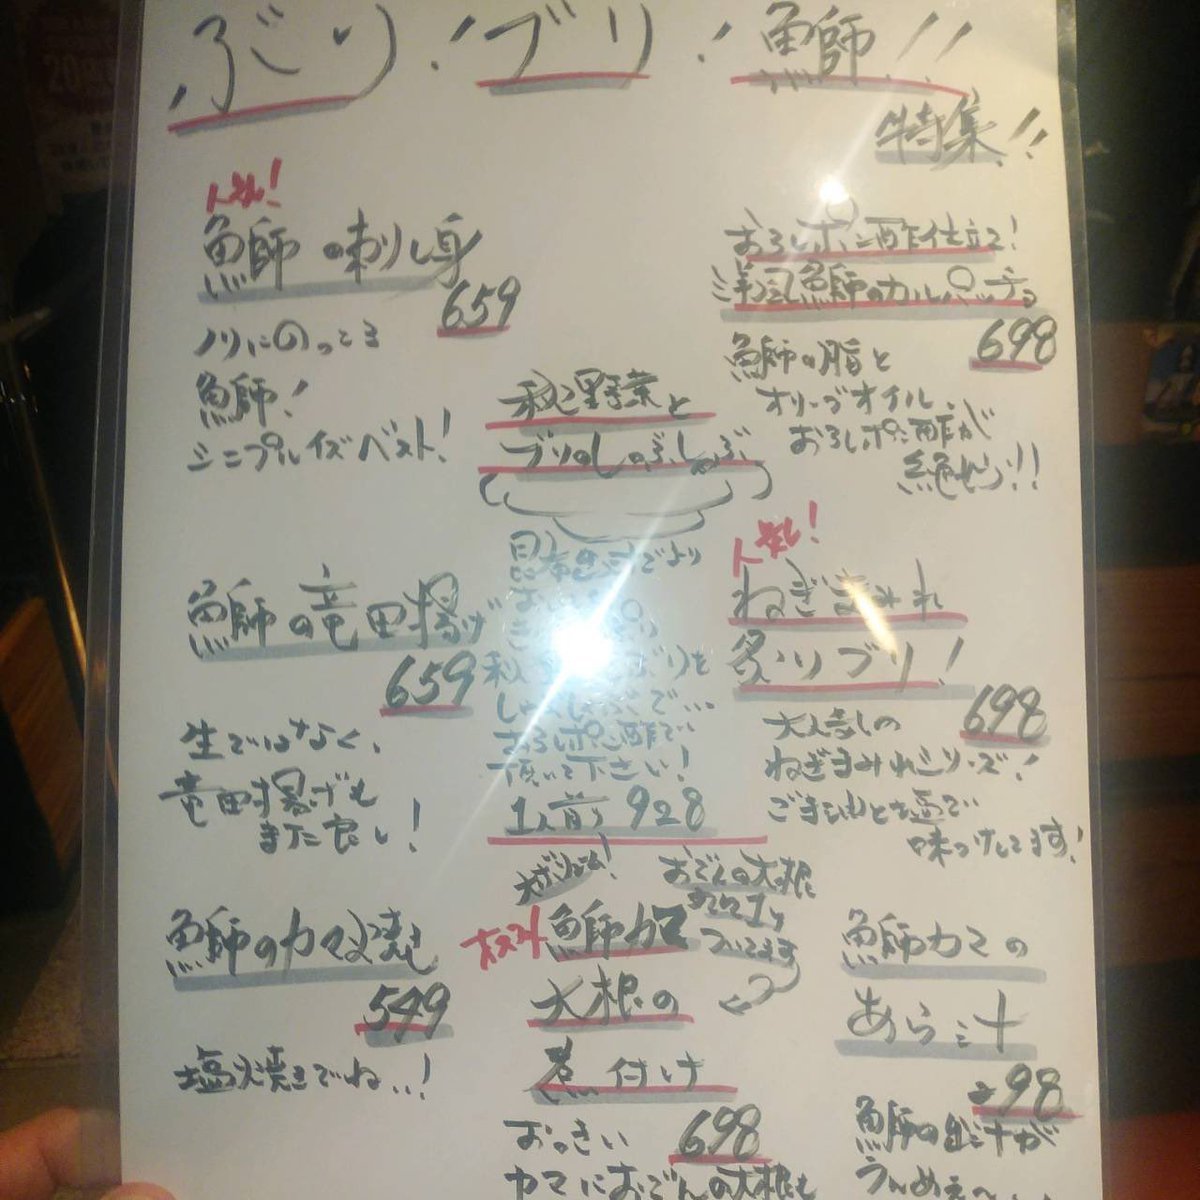 ぶり！ブリ！鰤！！
特集！！
人気！
鰤の刺し身
659
ノリにのってる
鰤！
シンプルイズベスト！
おろしポン酢仕立て！
洋風鰤のカルパッチョ
698
鰤の脂と
オリーブオイル、
おろしポン酢が
絶せつ！！
秋野菜と
ブリのしゃぶしゃぶ
昆布だしでより
ぶりを
しゃぶしゃぶで…
おろしポン酢で
頂いて下さい！
1人前 928
鰤の竜田揚げ
659
生ではなく、
竜田揚げも
また良し！
人気！
ねぎまみれ
炙りブリ！
698
大人気の
ねぎまみれシリーズ！
ごま油と塩で
味つけしてます！
鰤のカマ塩焼き
549
塩焼きでね…！
おでんの大根
ついてます
オススメ
鰤カマ
大根の
煮付け
698
おっきい
カマにおでんの大根も
鰤カマの
あら汁
98
鰤の出汁が
うんめぇ〜